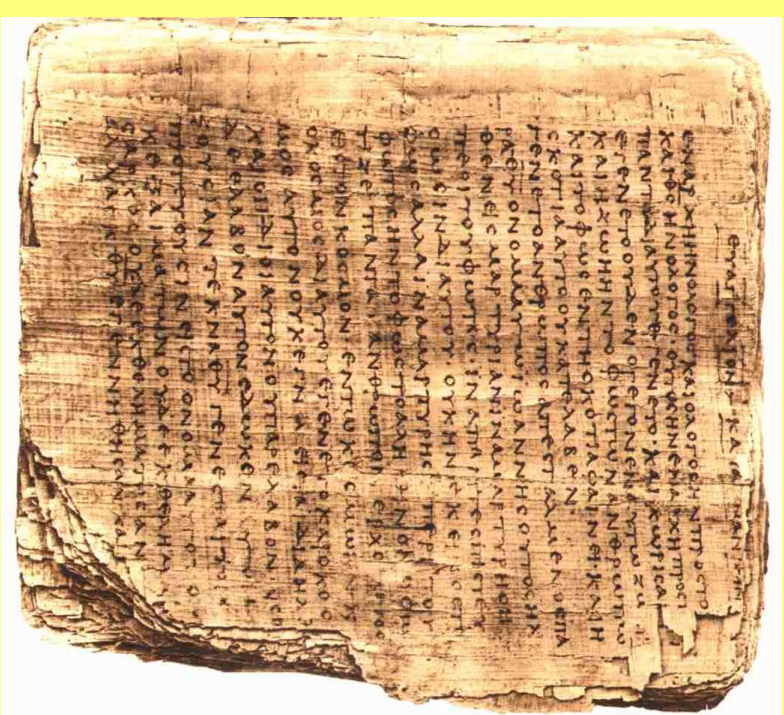 ευαγγελιον κατα
εν αρχη ην ο λογος και ο λογος ην προς το
και θς ην ο λογος ουτος ην εν αρχη προς τ
παντα δι αυτου εγενετο και χωρις α
εγενετο ουδεν ο γεγονεν εν αυτω ζω
και η ζωη ην το φως των ανθρωπω
και το φως εν τη σκοτια φαινει και η
σκοτια αυτο ου κατελαβεν
γενετο ανθρωπος απεσταλμενος πα
ρα θυ ονομα αυτω ιωαννης ουτος ηλ
θεν εις μαρτυριαν ινα μαρτυρηση
περι του φωτος ινα παντες πιστευ
σωσιν δι αυτου ουκ ην εκεινος το
φως αλλ ινα μαρτυρηση περι του
φωτος ην το φως το αληθινον ο φω
τιζει παντα ανθρωπον ερχο
εις τον κοσμον εν τω κοσμω
ο κοσμος δι αυτου εγενετο και ο κος
μος αυτον ουκ εγνω εις τα ιδια ηλθε
και οι ιδιοι αυτον ου παρελαβον οσοι
δε ελαβον αυτον εδωκεν
ξουσιαν τεκνα θυ γενεσθαι το
πιστευουσιν εις το ονομα αυτου
κ εξ αιματων ουδε εκ θελημα
σαρκος ουδε εκ θεληματος αν
αλλα εκ θυ εγεννηθησαν και